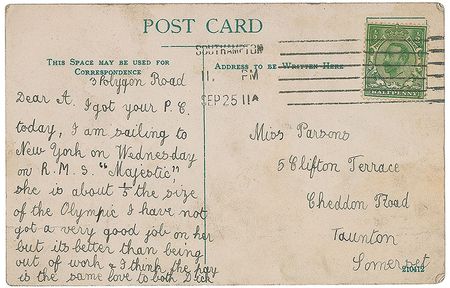 POST CARD
THIS SPACE MAY BE USED FOR
CORRESPONDENCE
ADDRESS TO BE WRITTEN HERE
SOUTHAMPTON
11. PM
SEP 25 11A
HALFPENNY
3 Polygon Road
Dear A. I got your P.C.
today, I am sailing to
New York on Wednesday
on R.M.S. "Majestic",
she is about ⅕ the size
of the Olympic I have not
got a very good job on her
but its better than being
out of work & I think the pay
is the same love to both Dick
Miss Parsons
5 Clifton Terrace
Cheddon Road
Taunton
Somerset
210412